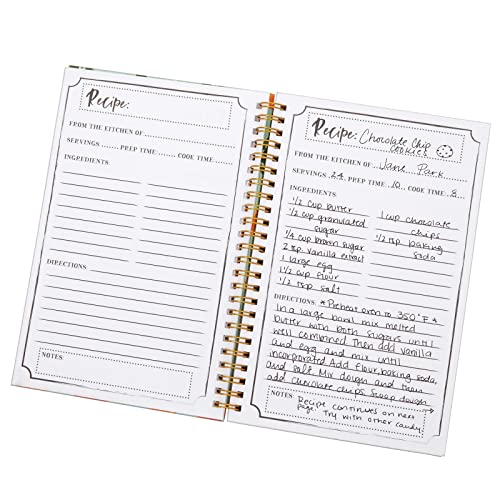 Recipe:
FROM THE KITCHEN OF
SERVINGS PREP TIME COOK TIME
INGREDIENTS:
DIRECTIONS:
NOTES:
Recipe: Chocolate Chip
Cookies
FROM THE KITCHEN OF Jane Park
SERVINGS 24 PREP TIME 10 COOK TIME 8
INGREDIENTS:
1/2 cup butter
1/2 cup granulated
sugar
1/4 cup brown sugar
2 tsp. vanilla extract
1 large egg
1 1/2 cup flour
1/2 tsp salt
1 cup chocolate
chips
1/2 tsp baking
soda
DIRECTIONS: *Preheat oven to 350°F *
In a large bowl mix melted
butter with both sugars until
well combined Then add vanilla
and egg and mix until
incorporated. Add flour, baking soda,
and salt. Mix dough and then
add chocolate chips. Scoop dough
NOTES: Recipe continues on next
page. Try with other candy.